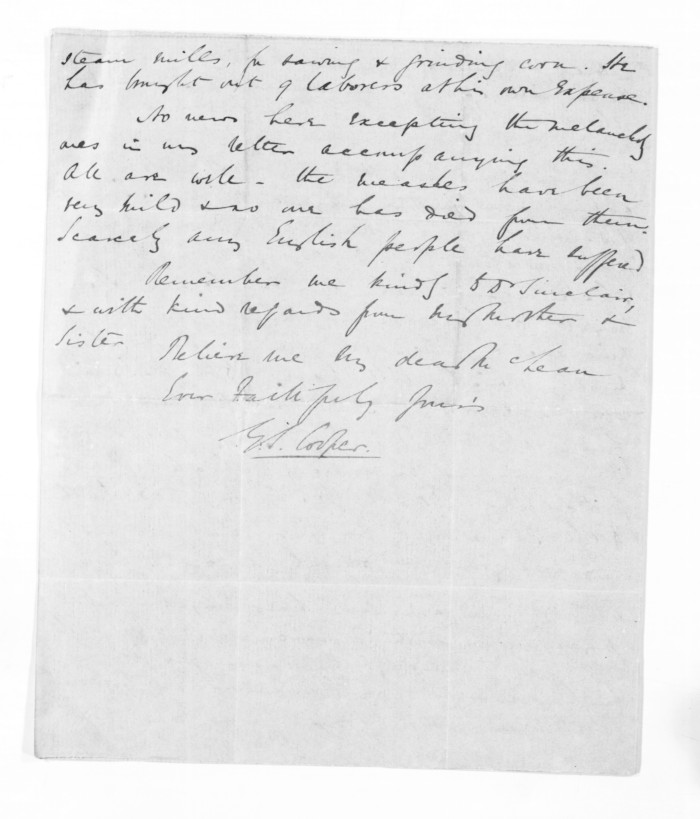 steam mills, for sawing & grinding corn. He
has brought out 9 laborers at his own Expense.
No news here excepting the melancholy
ones in my letter accompanying this.
All are well - the measles have been
very mild & no one has died from them.
Scarcely any English people have suffered
Remember me kindly to Dr Sinclair,
& with kind regards from my Mother &
Sister
Believe me My dear McLean
Ever Faithfully Yours
G.S. Cooper.